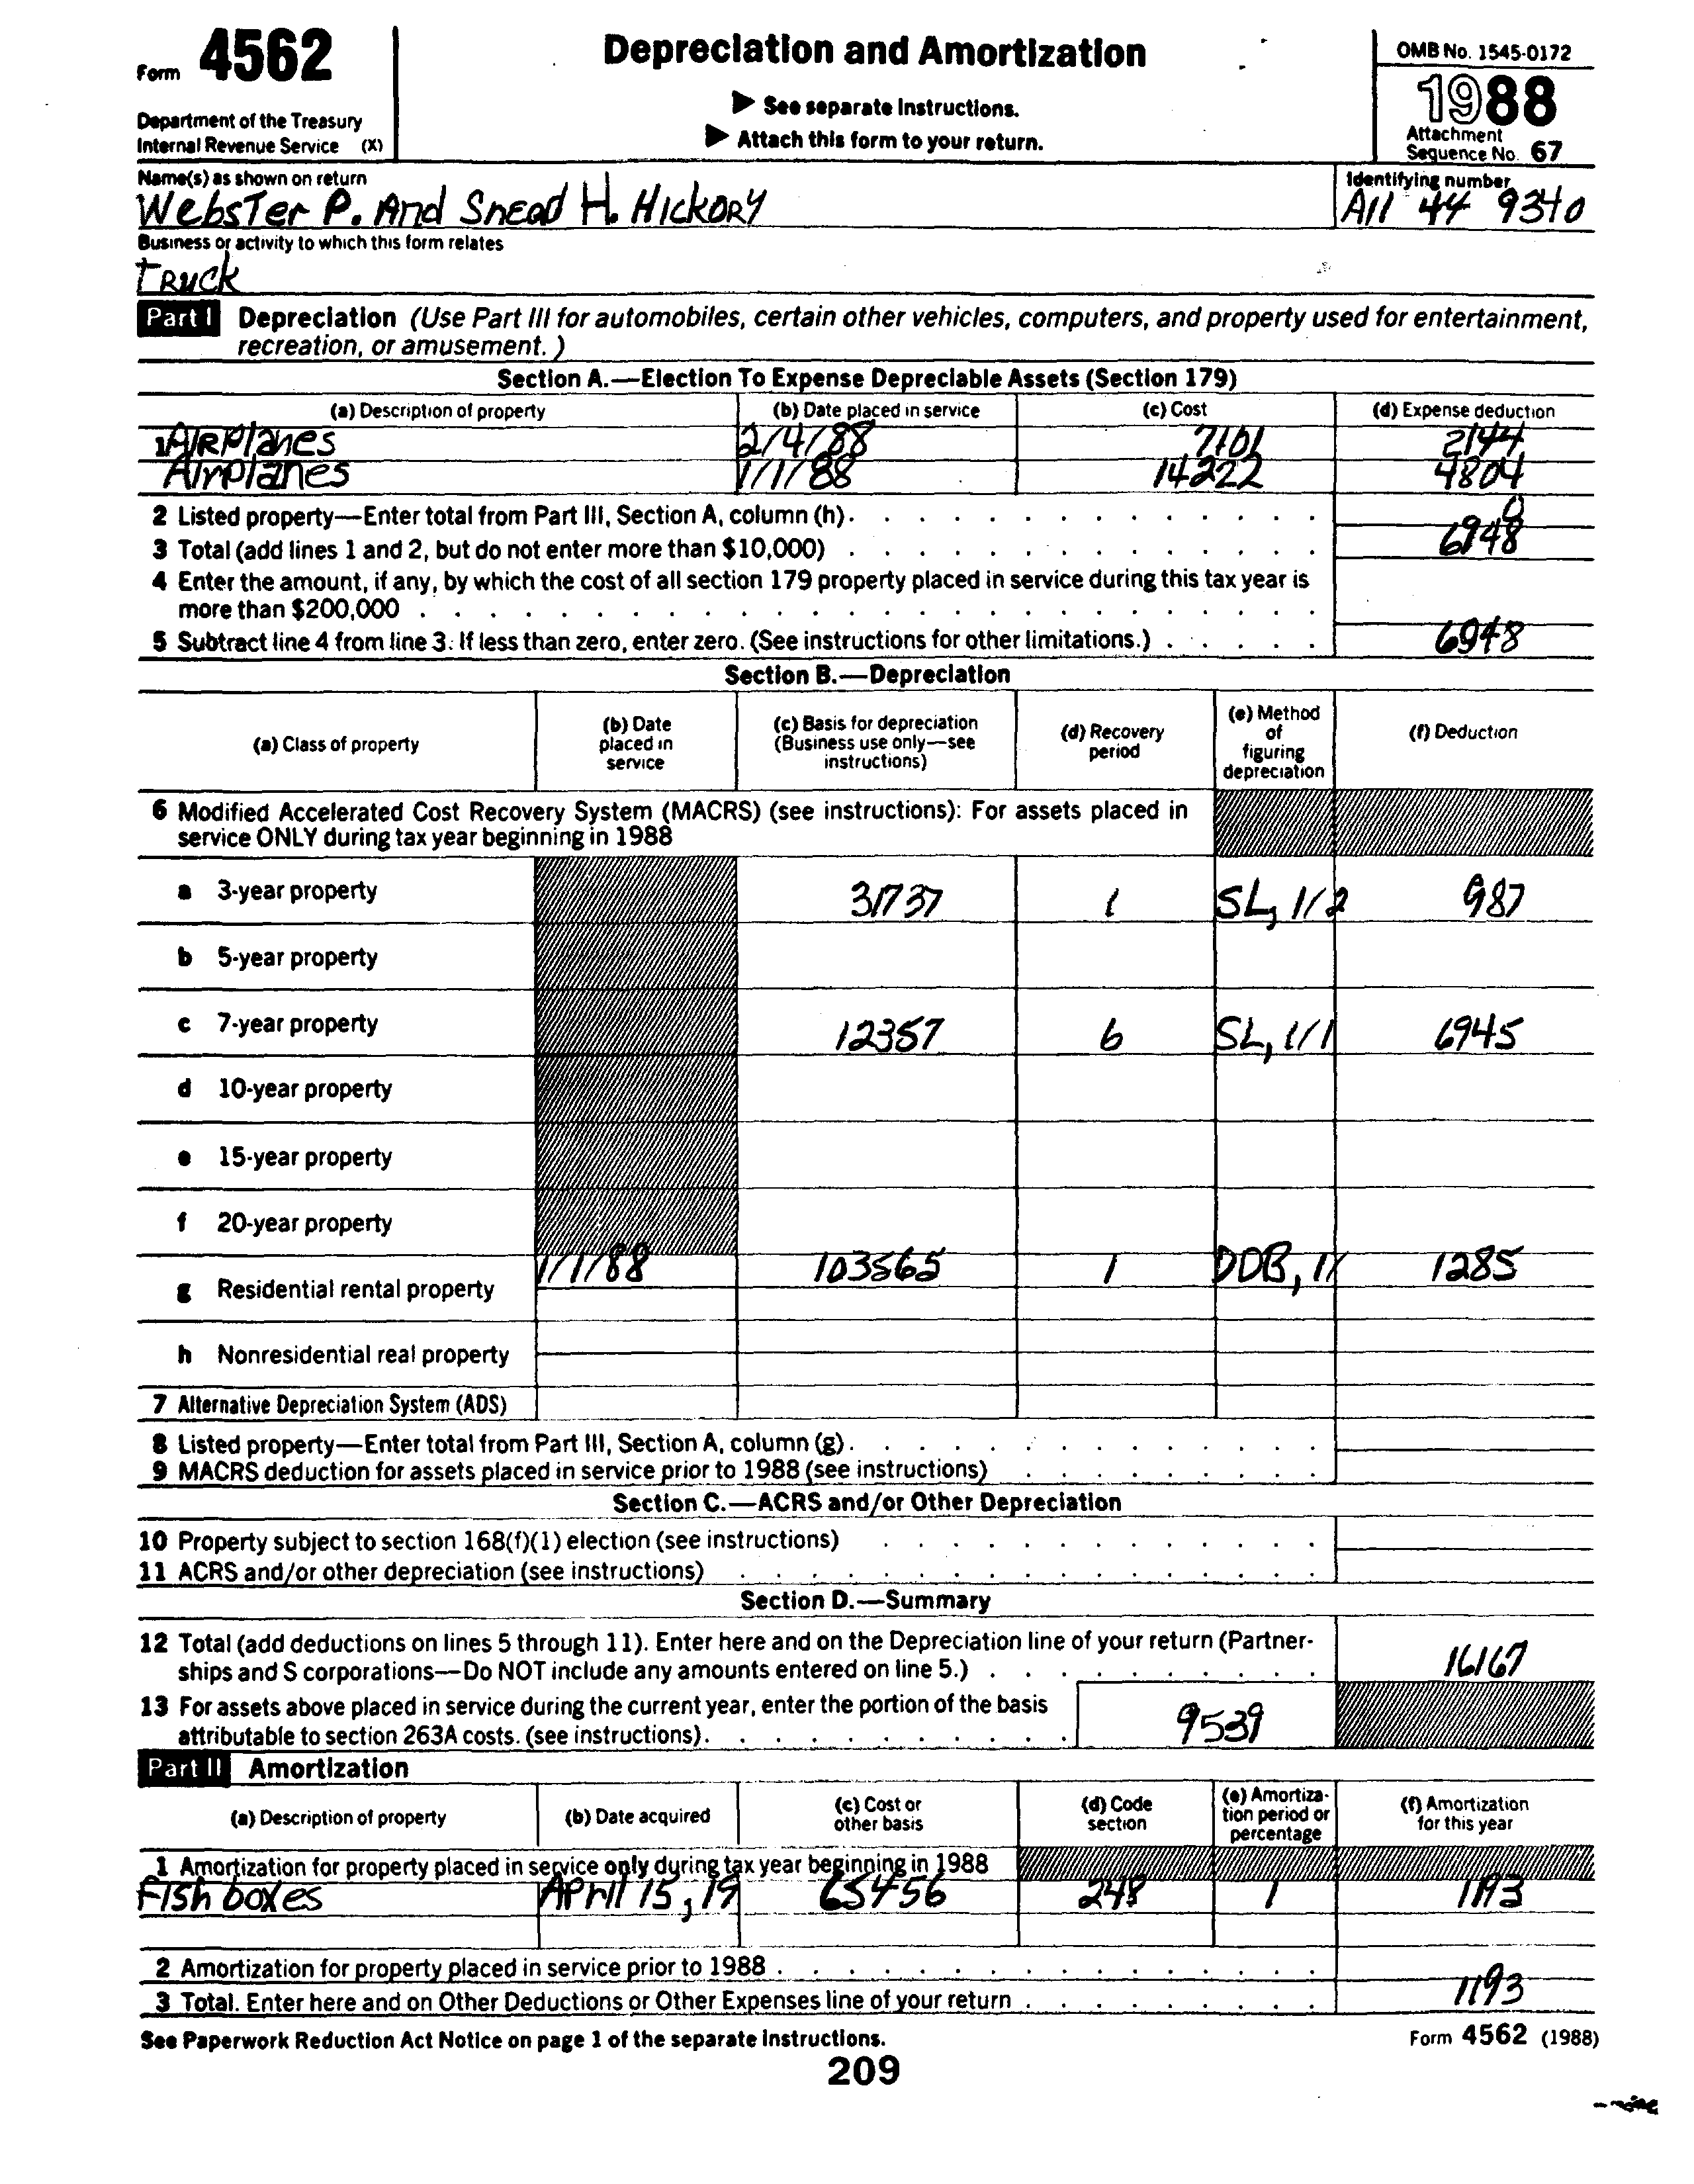 Form 4562
Department of the Treasury
Internal Revenue Service (X)
Depreciation and Amortization
▶ See separate Instructions.
▶ Attach this form to your return.
OMB No. 1545-0172
1988
Attachment
Sequence No. 67
Name(s) as shown on return
Webster P. And Snead H. Hickory
Identifying number
A11 44 9340
Business or activity to which this form relates
Truck
Part I Depreciation (Use Part III for automobiles, certain other vehicles, computers, and property used for entertainment,
recreation, or amusement.)
Section A.—Election To Expense Depreciable Assets (Section 179)
(a) Description of property (b) Date placed in service (c) Cost (d) Expense deduction
1 Airplanes 2/4/88 7101 2144
Airplanes 1/1/88 14222 4804
2 Listed property—Enter total from Part III, Section A, column (h). 0
3 Total (add lines 1 and 2, but do not enter more than $10,000) 6948
4 Enter the amount, if any, by which the cost of all section 179 property placed in service during this tax year is
more than $200,000
5 Subtract line 4 from line 3. If less than zero, enter zero. (See instructions for other limitations.) 6948
Section B.—Depreciation
(a) Class of property
(b) Date
placed in
service
(c) Basis for depreciation
(Business use only—see
instructions)
(d) Recovery
period
(e) Method
of
figuring
depreciation
(f) Deduction
6 Modified Accelerated Cost Recovery System (MACRS) (see instructions): For assets placed in
service ONLY during tax year beginning in 1988
a 3-year property 31737 1 SL, 1/2 987
b 5-year property
c 7-year property 12357 6 SL, 1/1 6945
d 10-year property
e 15-year property
f 20-year property
1/1/88 103565 1 DDB, 1/ 1285
g Residential rental property
h Nonresidential real property
7 Alternative Depreciation System (ADS)
8 Listed property—Enter total from Part III, Section A, column (g).
9 MACRS deduction for assets placed in service prior to 1988 (see instructions)
Section C.—ACRS and/or Other Depreciation
10 Property subject to section 168(f)(1) election (see instructions)
11 ACRS and/or other depreciation (see instructions)
Section D.—Summary
12 Total (add deductions on lines 5 through 11). Enter here and on the Depreciation line of your return (Partner-
ships and S corporations—Do NOT include any amounts entered on line 5.) 16167
13 For assets above placed in service during the current year, enter the portion of the basis
attributable to section 263A costs. (see instructions). 9539
Part II Amortization
(a) Description of property
(b) Date acquired
(c) Cost or
other basis
(d) Code
section
(e) Amortiza-
tion period or
percentage
(f) Amortization
for this year
1 Amortization for property placed in service only during tax year beginning in 1988
Fish boxes April 15, 19 65456 248 1 1193
2 Amortization for property placed in service prior to 1988
3 Total. Enter here and on Other Deductions or Other Expenses line of your return 1193
See Paperwork Reduction Act Notice on page 1 of the separate Instructions.
Form 4562 (1988)
209